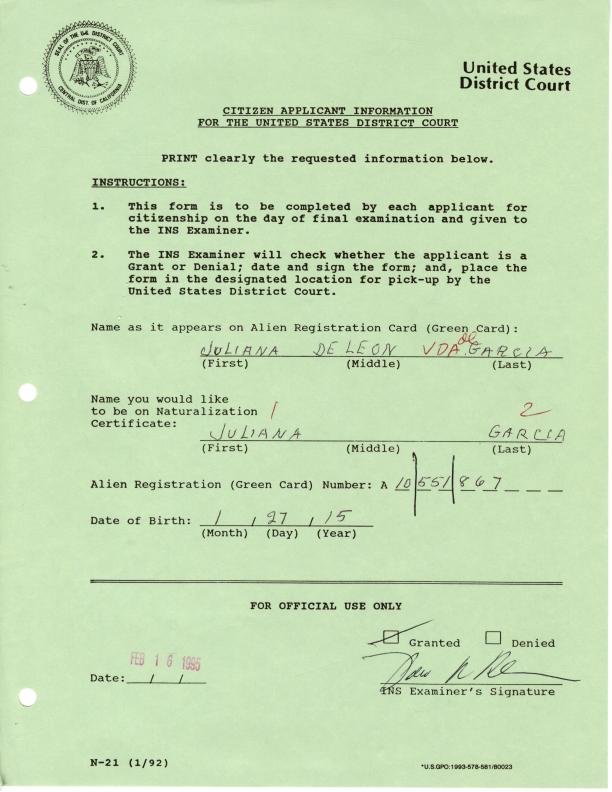 SEAL OF THE U.S. DISTRICT COURT
CENTRAL DIST. OF CALIFORNIA
United States
District Court
CITIZEN APPLICANT INFORMATION
FOR THE UNITED STATES DISTRICT COURT
PRINT clearly the requested information below.
INSTRUCTIONS:
1. This form is to be completed by each applicant for
citizenship on the day of final examination and given to
the INS Examiner.
2. The INS Examiner will check whether the applicant is a
Grant or Denial; date and sign the form; and, place the
form in the designated location for pick-up by the
United States District Court.
Name as it appears on Alien Registration Card (Green Card):
JULIANA DE LEON VDA. de GARCIA
(First) (Middle) (Last)
Name you would like
to be on Naturalization 1 2
Certificate:
JULIANA GARCIA
(First) (Middle) (Last)
Alien Registration (Green Card) Number: A 10 551 867
Date of Birth: 1 , 27 , 15
(Month) (Day) (Year)
FOR OFFICIAL USE ONLY
Granted Denied
FEB 16 1995
Date: / /
INS Examiner's Signature
N-21 (1/92)
*U.S.GPO:1993-578-581/80023